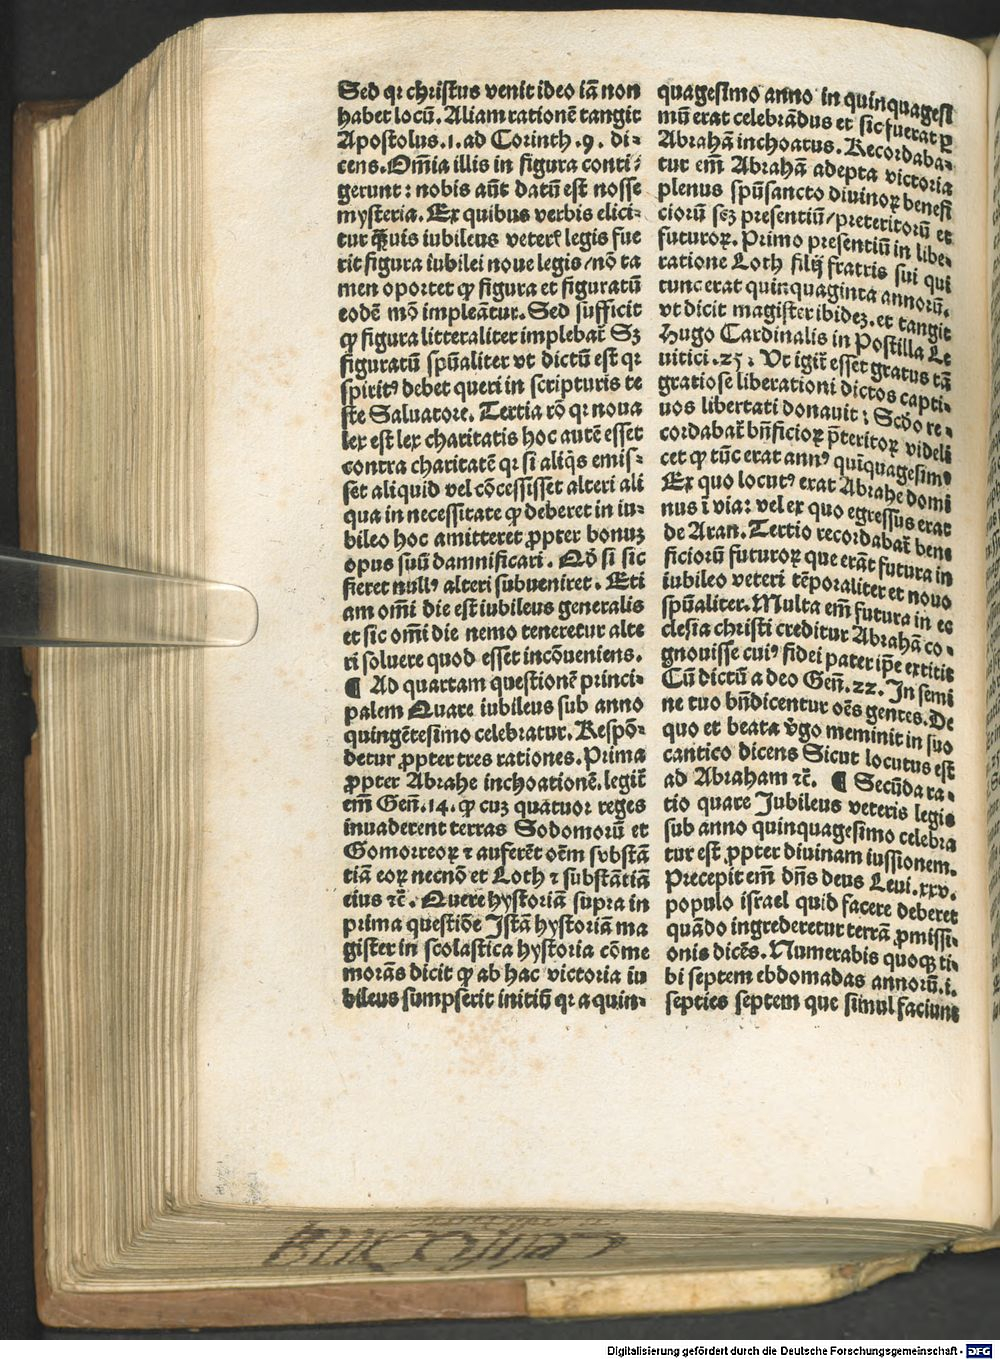 Sed qꝛ christus venit ideo iā non
habet locū. Aliam rationē tangit
Apostolus.1.ad Corinth.9. di⸗
cens.Om̄ia illis in figura conti⸗
gerunt: nobis aūt datū est nosse
mysteria. Ex quibus verbis elici⸗
tur q̄uis iubileus veteris legis fue
rit figura iubilei noue legis/nō ta
men oportet ꝙ figura et figuratū
eodē mō impleātur. Sed sufficit
ꝙ figura litteraliter implebat̄ Sꝫ
figuratū spūaliter vt dictū est qꝛ
spiritꝰ debet queri in scripturis te
ste Saluatore. Tertia rō qꝛ noua
lex est lex charitatis hoc autē esset
contra charitatē qꝛ si aliq̄s emis⸗
set aliquid vel cōcessisset alteri ali
qua in necessitate ꝙ deberet in iu⸗
bileo hoc amitteret ꝓpter bonuꝫ
opus suū damnificari. Qd̄ si sic
fieret nullꝰ alteri subueniret. Eti
am om̄i die est iubileus generalis
et sic om̄i die nemo teneretur alte
ri soluere quod esset incōueniens.
¶ Ad quartam questionē princi⸗
palem Quare iubileus sub anno
quingētesimo celebratur. Respō⸗
detur ꝓpter tres rationes. Prima
ꝓpter Abrahe inchoationē. legit̄
em̄ Gen̄.14. ꝙ cuꝫ quatuor reges
inuaderent terras Sodomorū et
Gomorreoꝝ ⁊ auferēt oēm substā
tiā eoꝝ necnō et Loth ⁊ substātiā
eius ⁊c̄. Quere hystoriā supra in
prima questiōe Istā hystoriā ma
gister in scolastica hystoria cōme
morās dicit ꝙ ab hac victoria iu
bileus sumpserit initiū qꝛ a quin⸗
quagesimo anno in quinquagesi
mū erat celebrādus et sic fuerat ꝑ
Abrahā inchoatus. Recordaba⸗
tur em̄ Abrahā adepta victoria
plenus spūsancto diuinoꝝ benefi
ciorū scꝫ presentiū/preteritorū et
futuroꝝ. Primo presentiū in libe⸗
ratione Loth filij fratris sui qui
tunc erat quinquaginta annorū.
vt dicit magister ibideꝫ. et tangit
Hugo Cardinalis in Postilla Le
uitici.25: Vt igit̄ esset gratus tā
gratiose liberationi dictos capti⸗
uos libertati donauit: Scd̄o re⸗
cordabat̄ bn̄ficioꝝ p̄teritoꝝ videli
cet ꝙ tūc erat annꝰ quīquagesimꝰ
Ex quo locutꝰ erat Abrahe domi
nus ī via: vel ex quo egressus erat
de Aran. Tertio recordabat̄ bene
ficiorū futuroꝝ que erāt futura in
iubileo veteri tēporaliter et nouo
spūaliter. Multa em̄ futura in ec
clesia christi creditur Abrahā co⸗
gnouisse cuiꝰ fidei pater ip̄e extitit
Cū dictū a deo Gen̄.22. In semi
ne tuo bn̄dicentur oēs gentes. De
quo et beata v̄go meminit in suo
cantico dicens Sicut locutus est
ad Abraham ⁊c̄. ¶ Secūda ra⸗
tio quare Jubileus veteris legis
sub anno quinquagesimo celebra
tur est ꝓpter diuinam iussionem.
Precepit em̄ dn̄s deus Leui.xxv.
populo israel quid facere deberet
quādo ingrederetur terrā ꝓmissi⸗
onis dicēs. Numerabis quoqꝫ ti⸗
bi septem ebdomadas annorū.i.
septies septem que simul faciunt
Digitalisierung gefördert durch die Deutsche Forschungsgemeinschaft - DFG